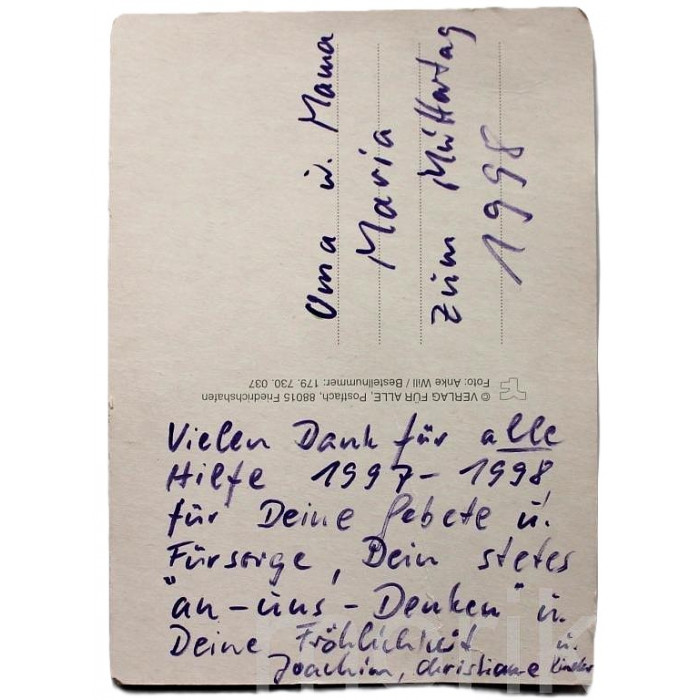 Oma u. Mama
Maria
zum Muttertag
1998
© VERLAG FÜR ALLE, Postfach, 88015 Friedrichshafen
Foto: Anke Will / Bestellnummer: 179. 730. 037
Vielen Dank für alle
Hilfe 1997-1998,
für Deine Gebete u.
Fürsorge, Dein stetes
"an-uns-Denken" u.
Deine Fröhlichkeit
Joachim, Christiane u. Kinder